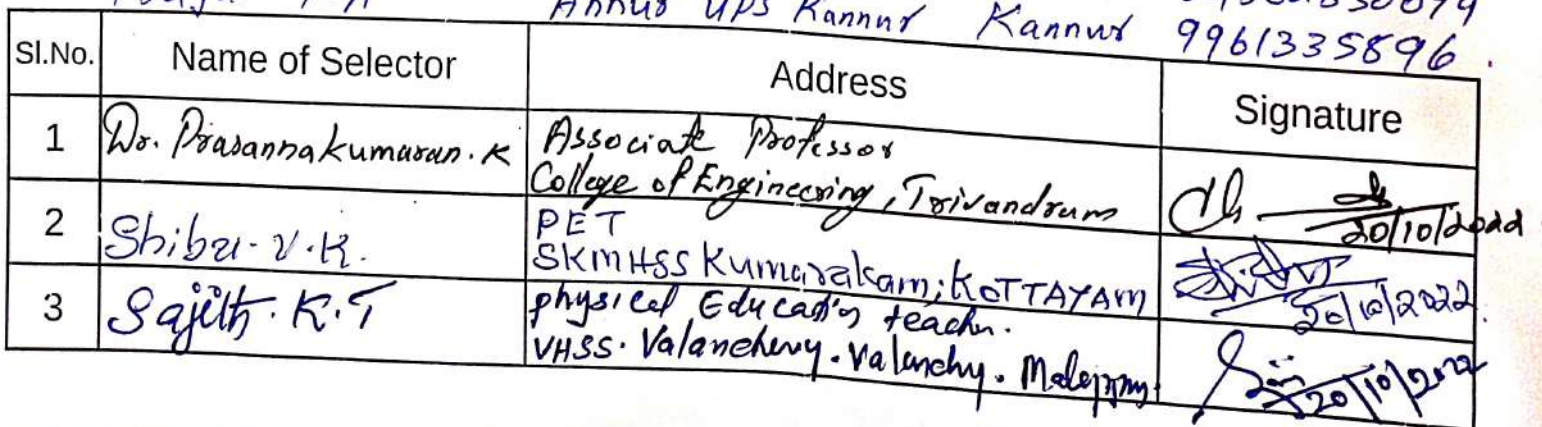 Annur UPS Kannur Kannur 9961335896.
Sl.No. Name of Selector Address Signature
1 Dr. Prasannakumaran. K Associate Professor
College of Engineering, Trivandrum
20/10/2022
2 Shibu. V. K. PET
SKMHSS Kumarakam, KOTTAYAM
20/10/2022.
3 Sajith. K. T physical Education teacher.
VHSS. Valanchery.
20/10/2022